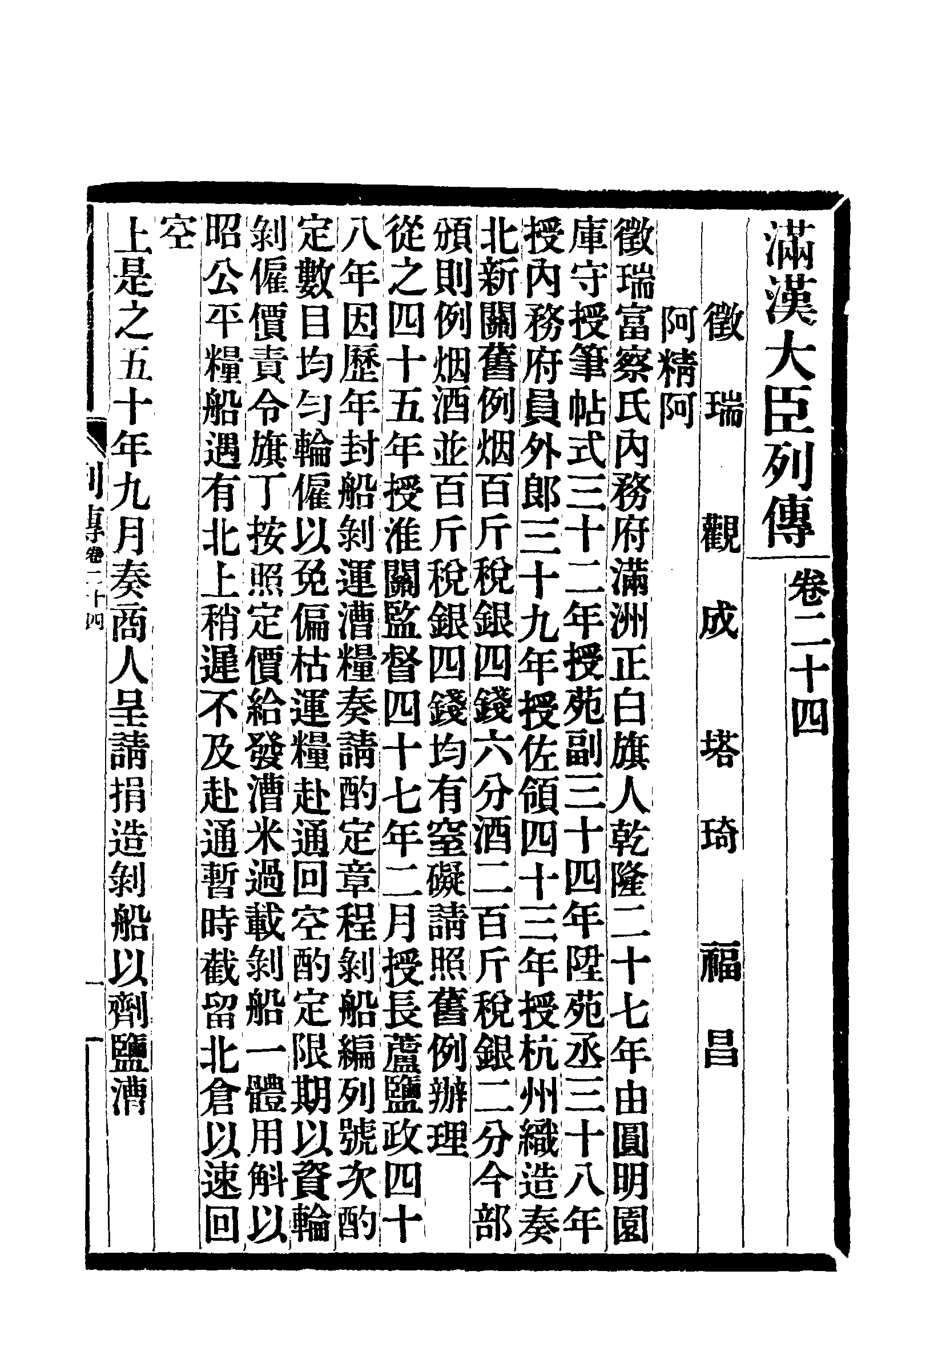 滿漢大臣列傳
卷二十四
徵瑞 觀成 塔琦 福昌
阿精阿
徵瑞富察氏內務府滿洲正白旗人乾隆二十七年由圓明園
庫守授筆帖式三十二年授苑副三十四年陞苑丞三十八年
授內務府員外郎三十九年授佐領四十三年授杭州織造奏
北新關舊例烟百斤稅銀四錢六分酒二百斤稅銀二分今部
頒則例烟酒並百斤稅銀四錢均有窒礙請照舊例辦理
從之四十五年授淮關監督四十七年二月授長蘆鹽政四十
八年因歷年封船剝運漕糧奏請酌定章程剝船編列號次酌
定數目均勻輪僱以免偏枯運糧赴通回空酌定限期以資輪
剝僱價責令旗丁按照定價給發漕米過載剝船一體用斛以
昭公平糧船遇有北上稍遲不及赴通暫時截留北倉以速回
空
上是之五十年九月奏商人呈請捐造剝船以劑鹽漕
列傳卷二十四
一